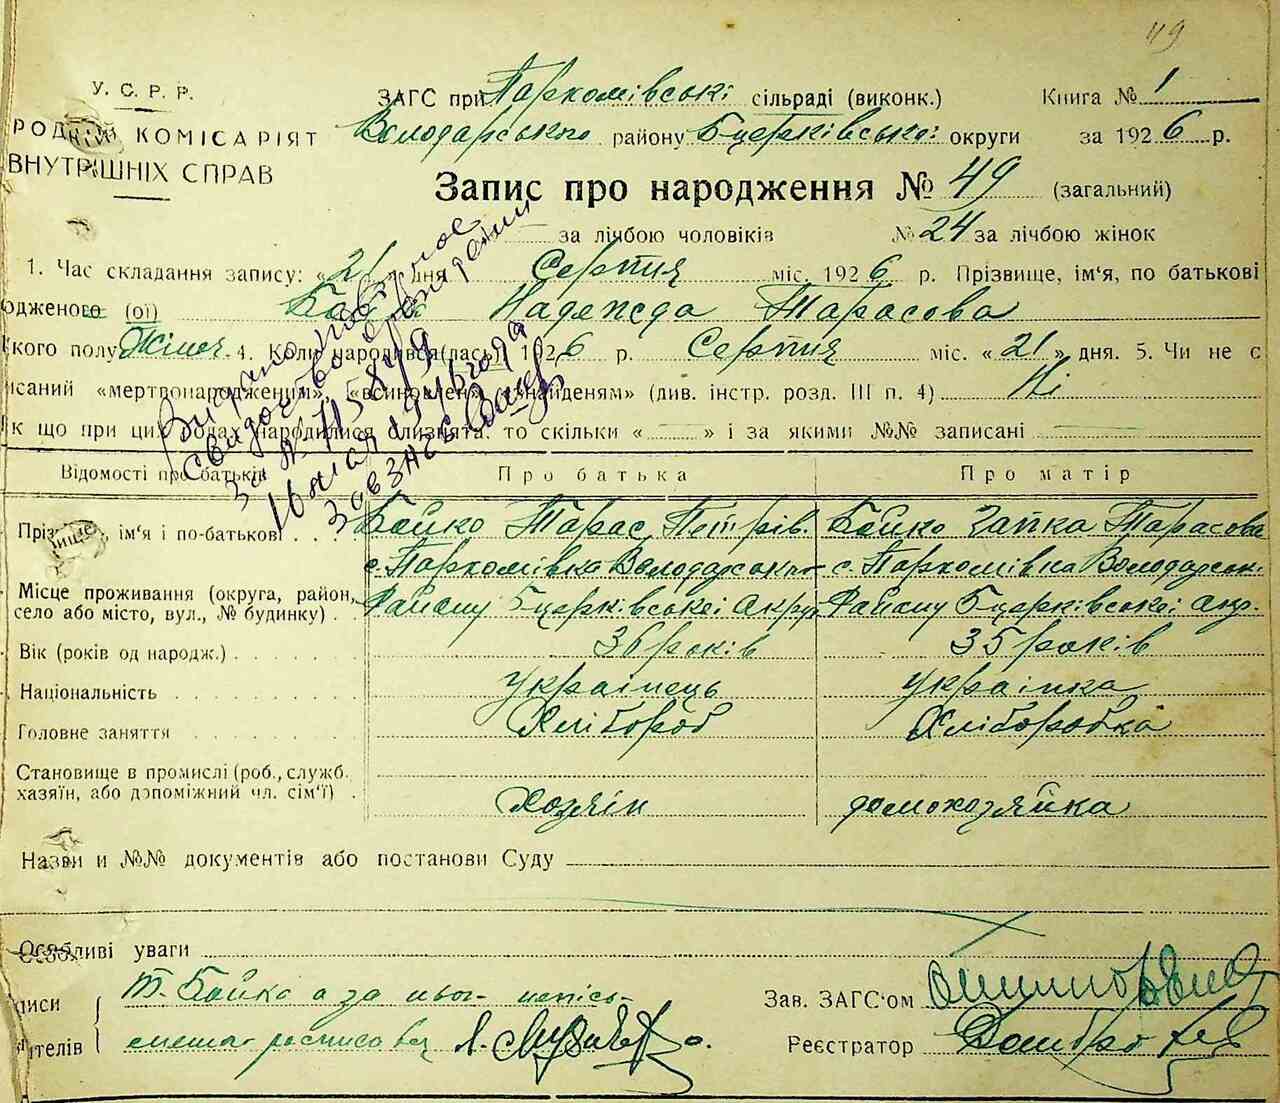 49
У. С. Р. Р.
РОДНІЙ КОМІСАРІЯТ
ВНУТРІШНІХ СПРАВ
ЗАГС при Пархомівські сільраді (виконк.) Книга № 1
Володарського району Бцерківської округи за 1926 р.
Запис про народження № 49 (загальний)
за лічбою чоловіків № 24 за лічбою жінок
1. Час складання запису: « 21 » дня Серпня міс. 1926 р. Прізвище, ім'я, по батькові
одженого (ої) Бойко Надежда Тарасова
кого полу Жіноч. 4. Коли народився(лась) 1926 р. Серпня міс. « 21 » дня. 5. Чи не є
исаний «мертвонародженим», «всиновлен», «знайденям» (див. інстр. розд. III п. 4) Ні
к що при цих родах народилися близнята, то скільки « » і за якими №№ записані
Видано повторное
свидот во о рождении
16 мая 19 года
Відомості про батьків Про батька Про матір
Прізвище, ім'я і по-батькові . . . Бойко Тарас Петрів. Бойко Гапка Тарасова
с. Пархомівка Володарського с. Пархомівка Володарські
Місце проживання (округа, район,
село або місто, вул., № будинку) . . Району Бцерківської Округ Району Бцерківської окр.
Вік (років од народж.) . . . . . 36 років 35 років
Національність . . . . . . . Українець Українка
Головне заняття . . . . . . Хлібороб Хліборобка
Становище в промислі (роб., служб.
хазяїн, або допоміжний чл. сім'ї) . Хозяїн домохозяйка
Назви и №№ документів або постанови Суду
Особливі уваги
писи Т. Бойко а за нього непісь- Зав. ЗАГС'ом
ителів менного росписовсь А. Реєстратор